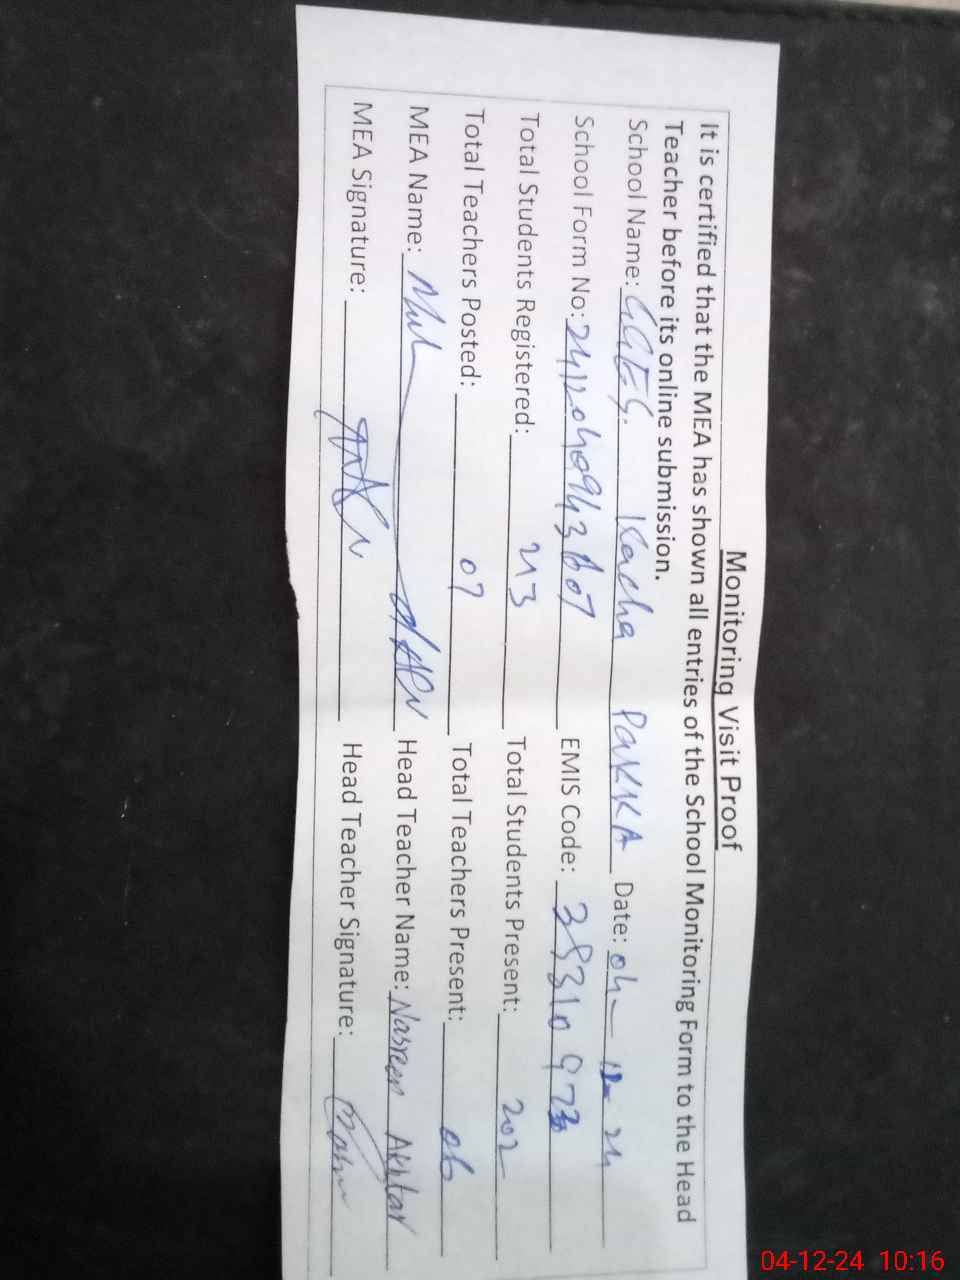 Monitoring Visit Proof
It is certified that the MEA has shown all entries of the School Monitoring Form to the Head
Teacher before its online submission.
School Name: GGES. Kacha PaKKA Date: 04-12-24
School Form No: EMIS Code:
Total Students Registered: 213 Total Students Present: 202
Total Teachers Posted: 07 Total Teachers Present: 06
MEA Name: Head Teacher Name: Nasreen Akhtar
MEA Signature: Head Teacher Signature:
04-12-24 10:16